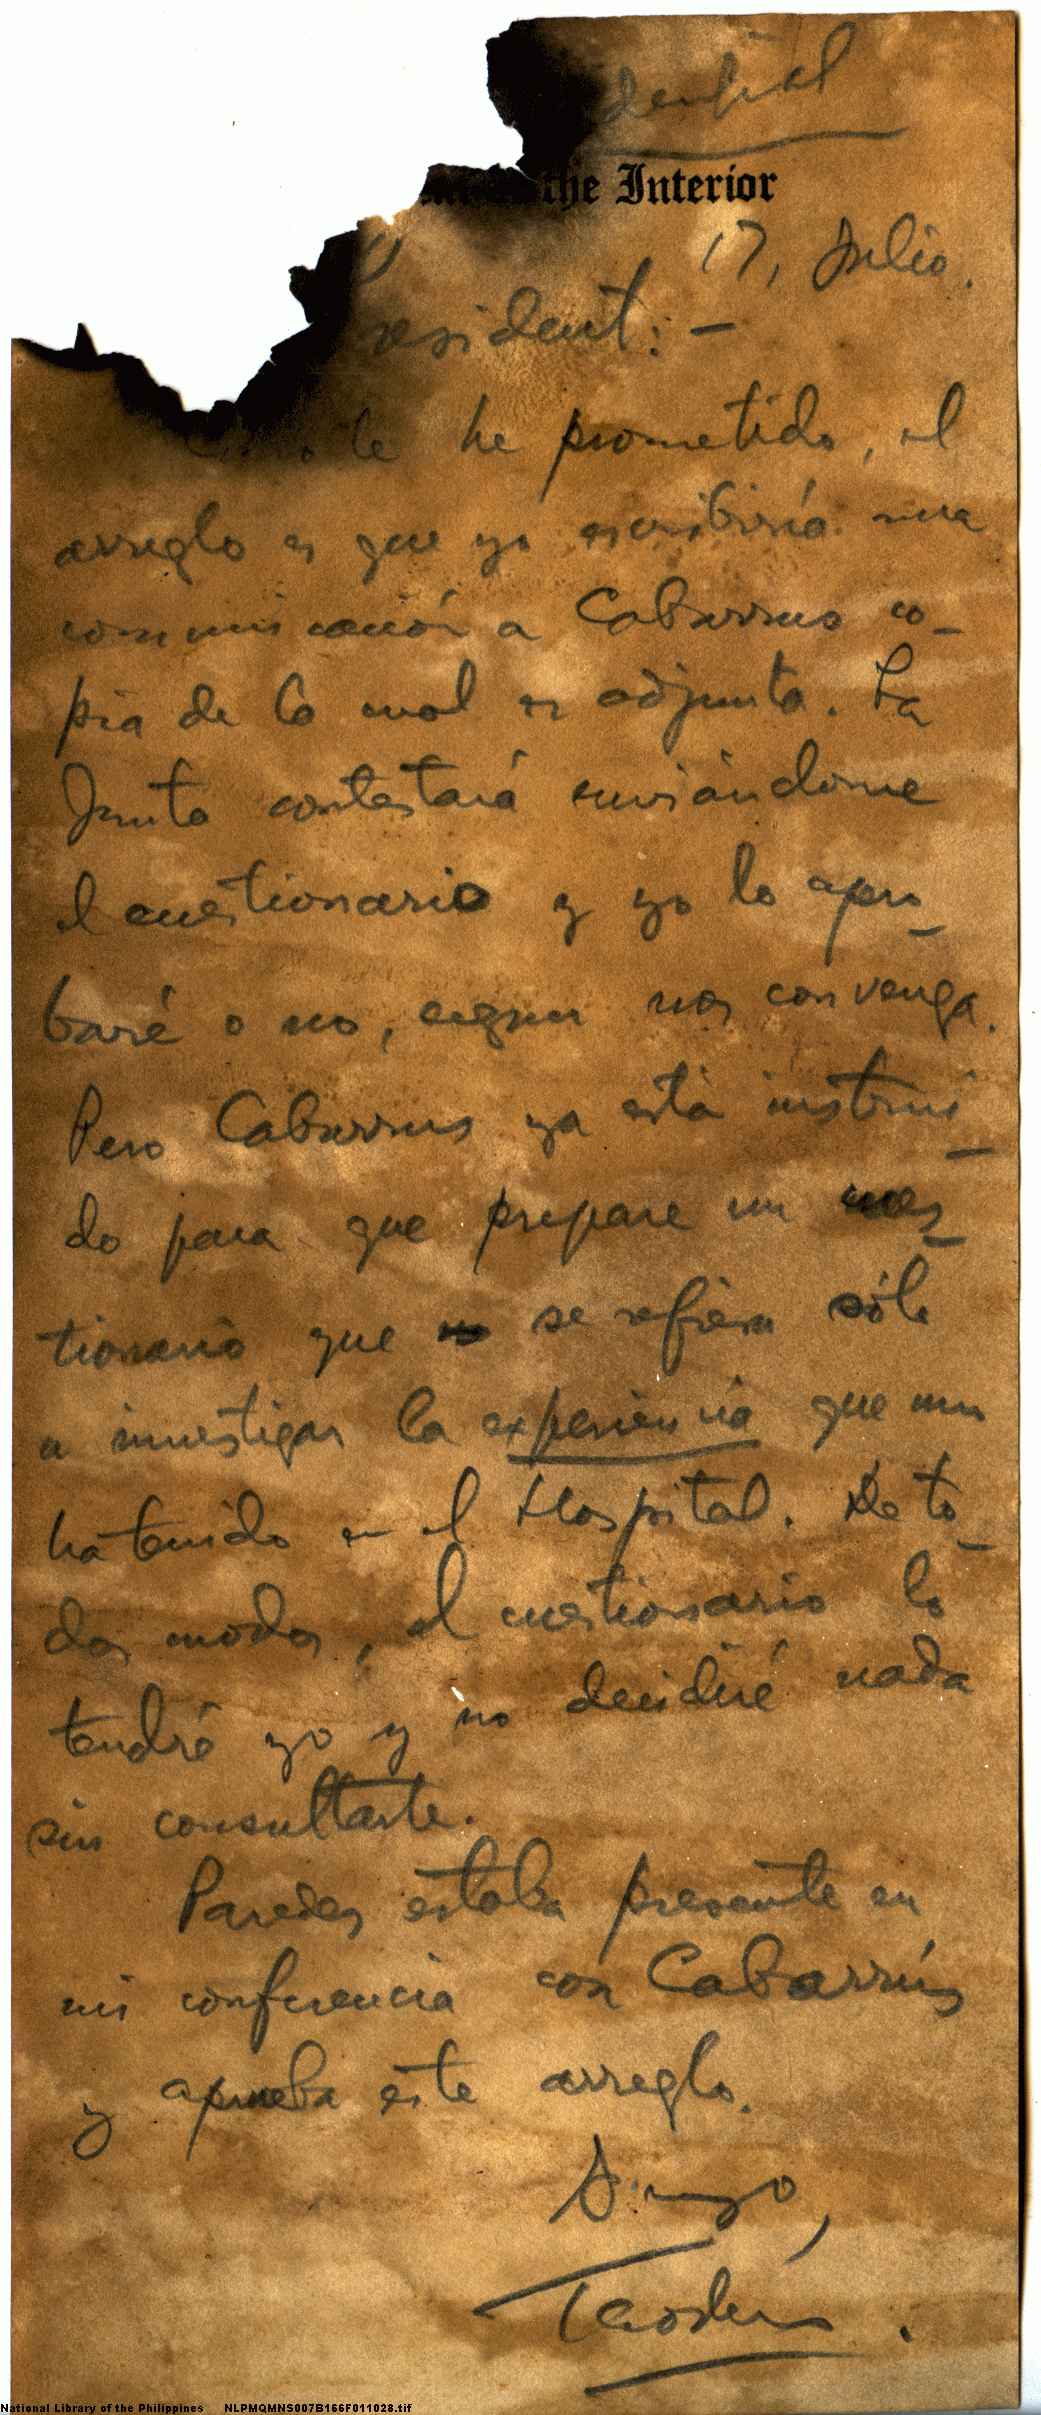 dential
the Interior
17, Julio.
resident: –
te he prometido, el
arreglo es que yo escribiría una
comunicación a Cabarrus co-
pia de la cual es adjunta. La
Junta contestará enviándome
el cuestionario y yo lo apro-
baré o no, según nos convenga.
Pero Cabarrus ya está instrui-
do para que prepare un cues-
tionario que se refiera sólo
a investigar la experiencia que uno
ha tenido en el Hospital. De to-
dos modos, el cuestionario lo
tendré yo y no decidiré nada
sin consultarte.
Paredes estaba presente en
mi conferencia con Cabarrús
y aprueba este arreglo.
National Library of the Philippines NLPMQMNS007B166F011028.tif